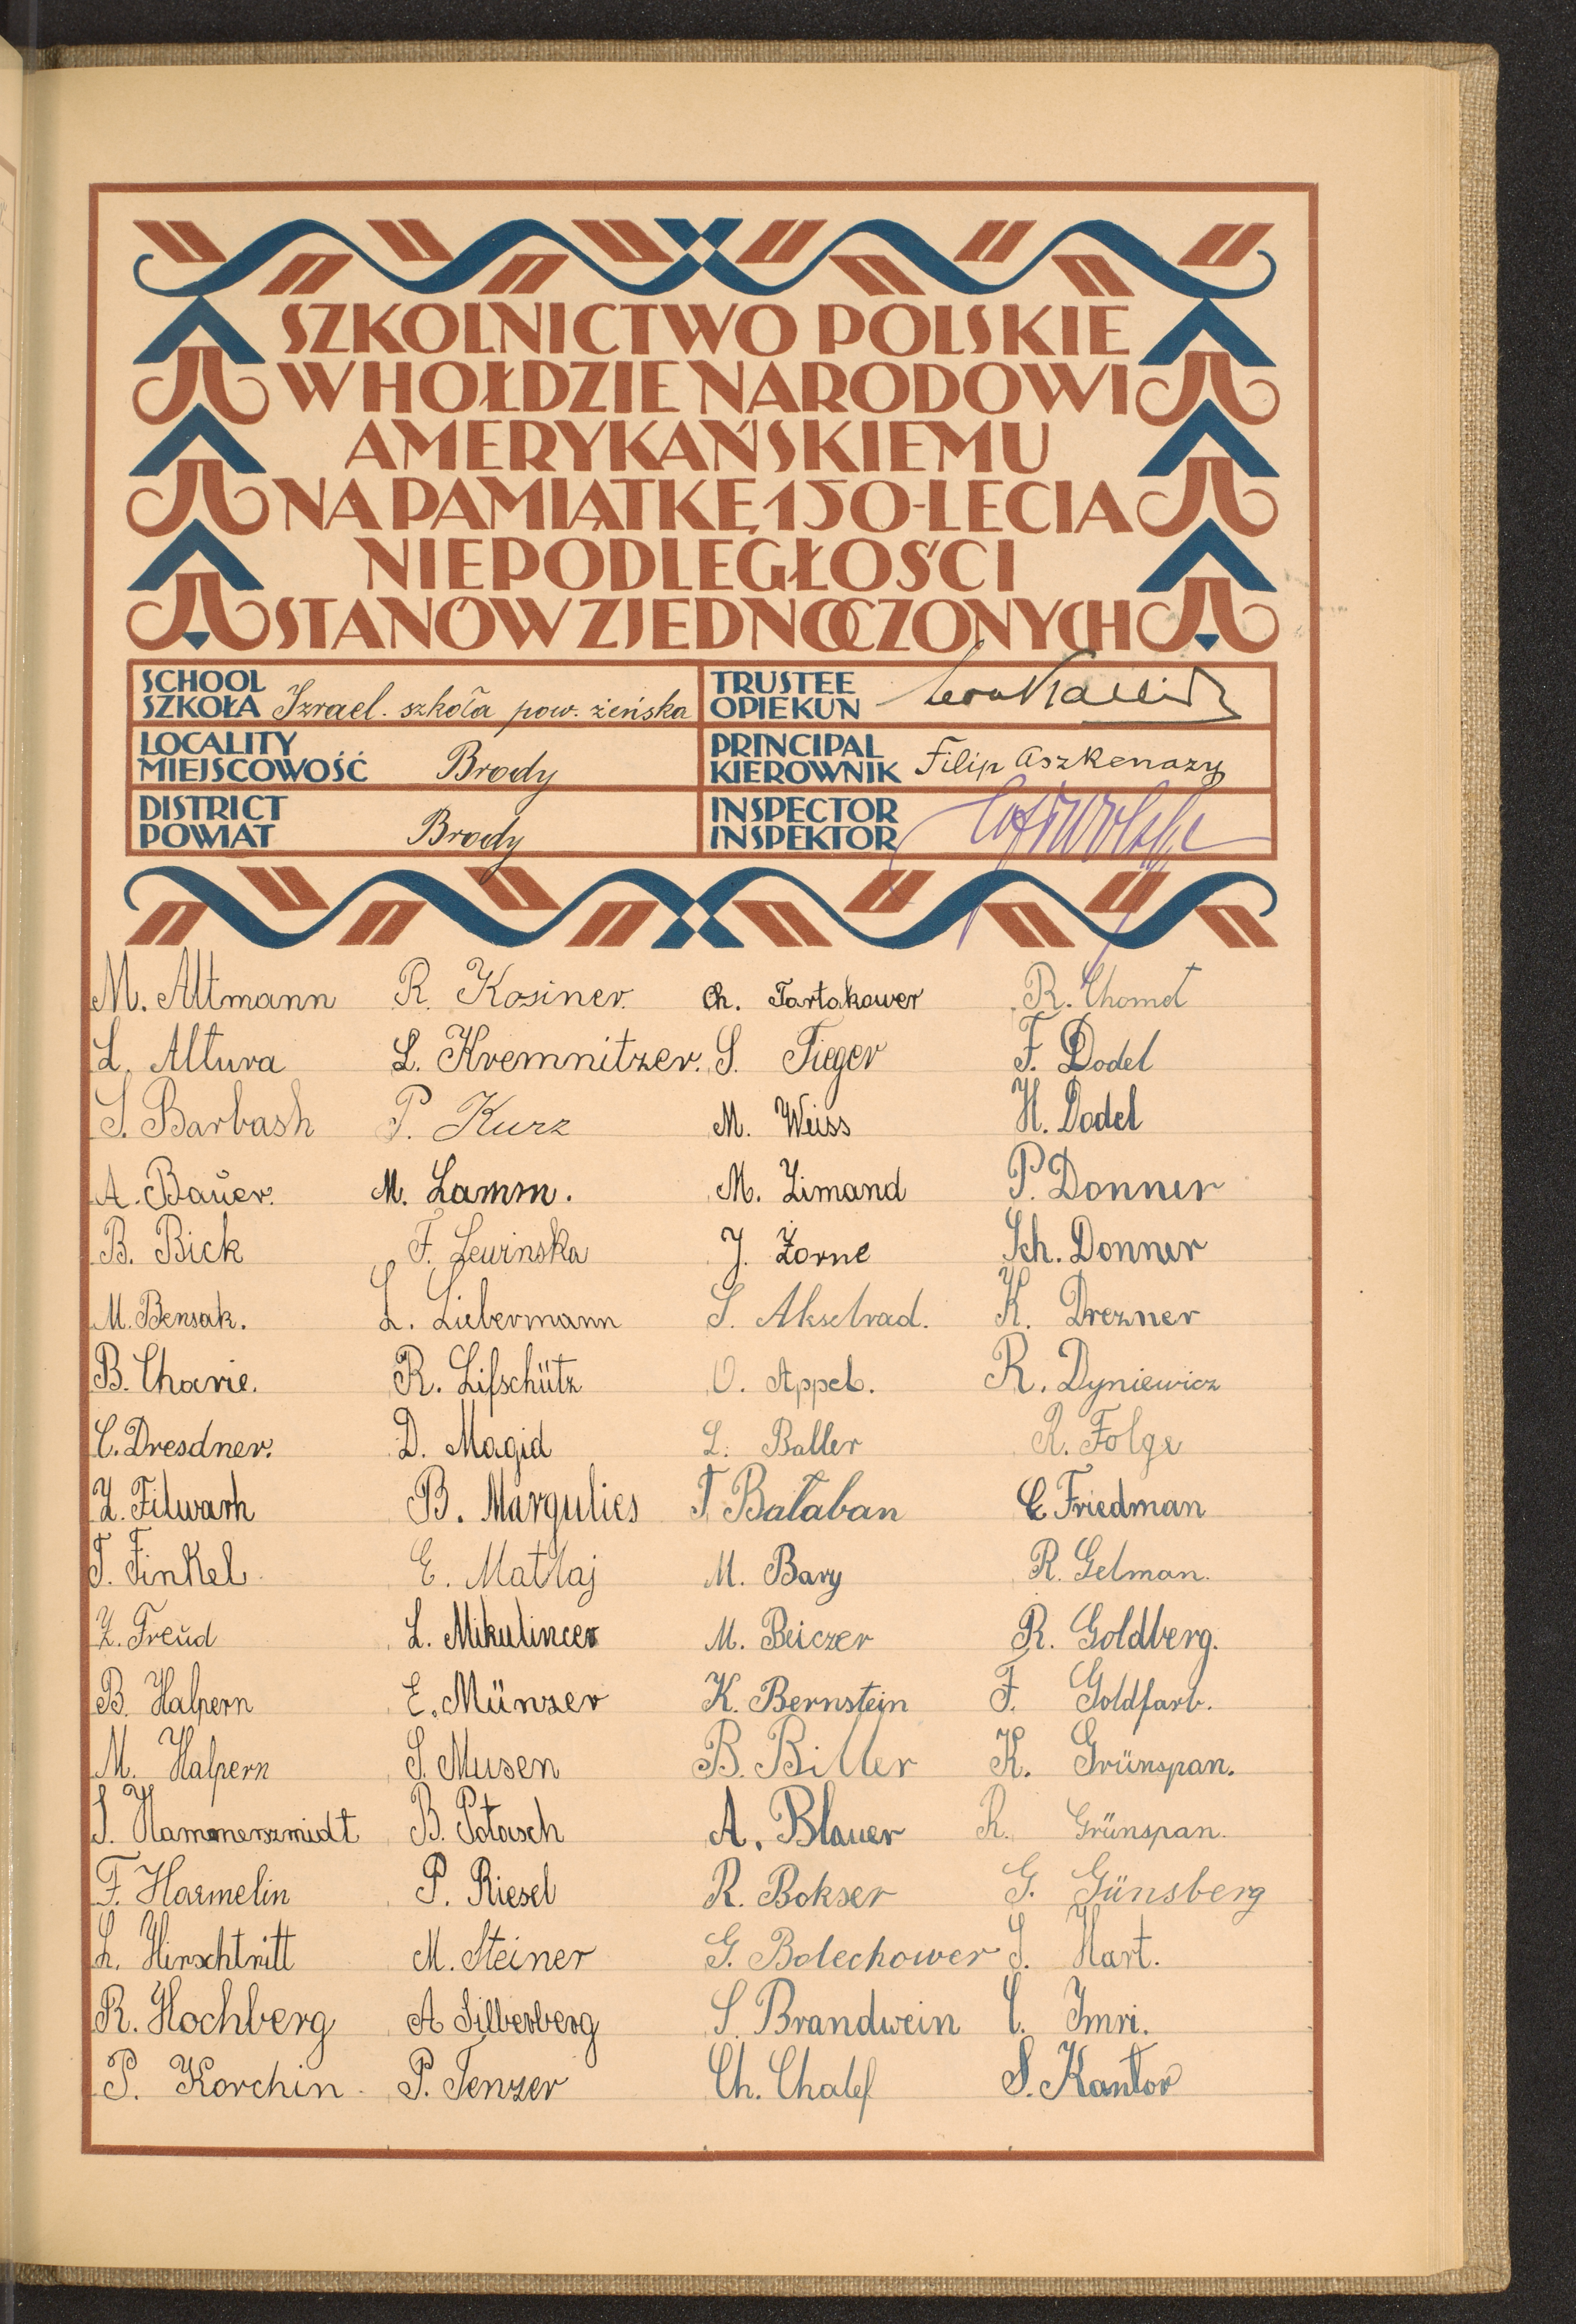 SZKOLNICTWO POLSKIE
W HOŁDZIE NARODOWI
AMERYKAŃSKIEMU
NA PAMIĄTKĘ 150-LECIA
NIEPODLEGŁOŚCI
STANÓW ZJEDNOCZONYCH
SCHOOL
SZKOŁA Izrael. szkoła pow. żeńska
TRUSTEE
OPIEKUN
LOCALITY
MIEJSCOWOŚĆ Brody
PRINCIPAL
KIEROWNIK Filip Aszkenazy
DISTRICT
POWIAT Brody
INSPECTOR
INSPEKTOR
M. Altmann
L. Altura
S. Barbash
A. Bauer.
B. Bick
M. Bensak.
B. Charie.
C. Dresdner.
Z. Filwarh
T. Finkel
Z. Freud
B. Halpern
M. Halpern
S. Hammerszmidt
F. Harmelin
L. Hirschtritt
R. Hochberg
P. Korchin
R. Kosiner.
L. Kremnitzer.
P. Kurz
M. Lamm.
F. Lewinska
L. Liebermann
R. Lifschütz
D. Magid
B. Margulies
E. Matłaj
L. Mikulincer
E. Münzer
S. Musen
B. Potasch
P. Riesel
M. Steiner
A Silberberg
P. Tenzer
Ch. Tartakower
S. Tieger
M. Weiss
M. Zimand
J. Żorne
S. Akselrad.
O. Appel.
L. Baller
T. Bałaban
M. Bary
M. Beiczer
K. Bernstein
B. Biller
A. Blauer
R. Bokser
G. Bolechower
S. Brandwein
Ch. Chalef
R. Chomet
F. Dodel
H. Dodel
P. Donner
Sch. Donner
K. Drezner
R. Dyniewicz
R. Folge
C Friedman
R. Gelman.
R. Goldberg.
F. Goldfarb.
K. Grünspan.
R. Grünspan.
G. Günsberg
S. Hart.
C. Imri.
S. Kantor